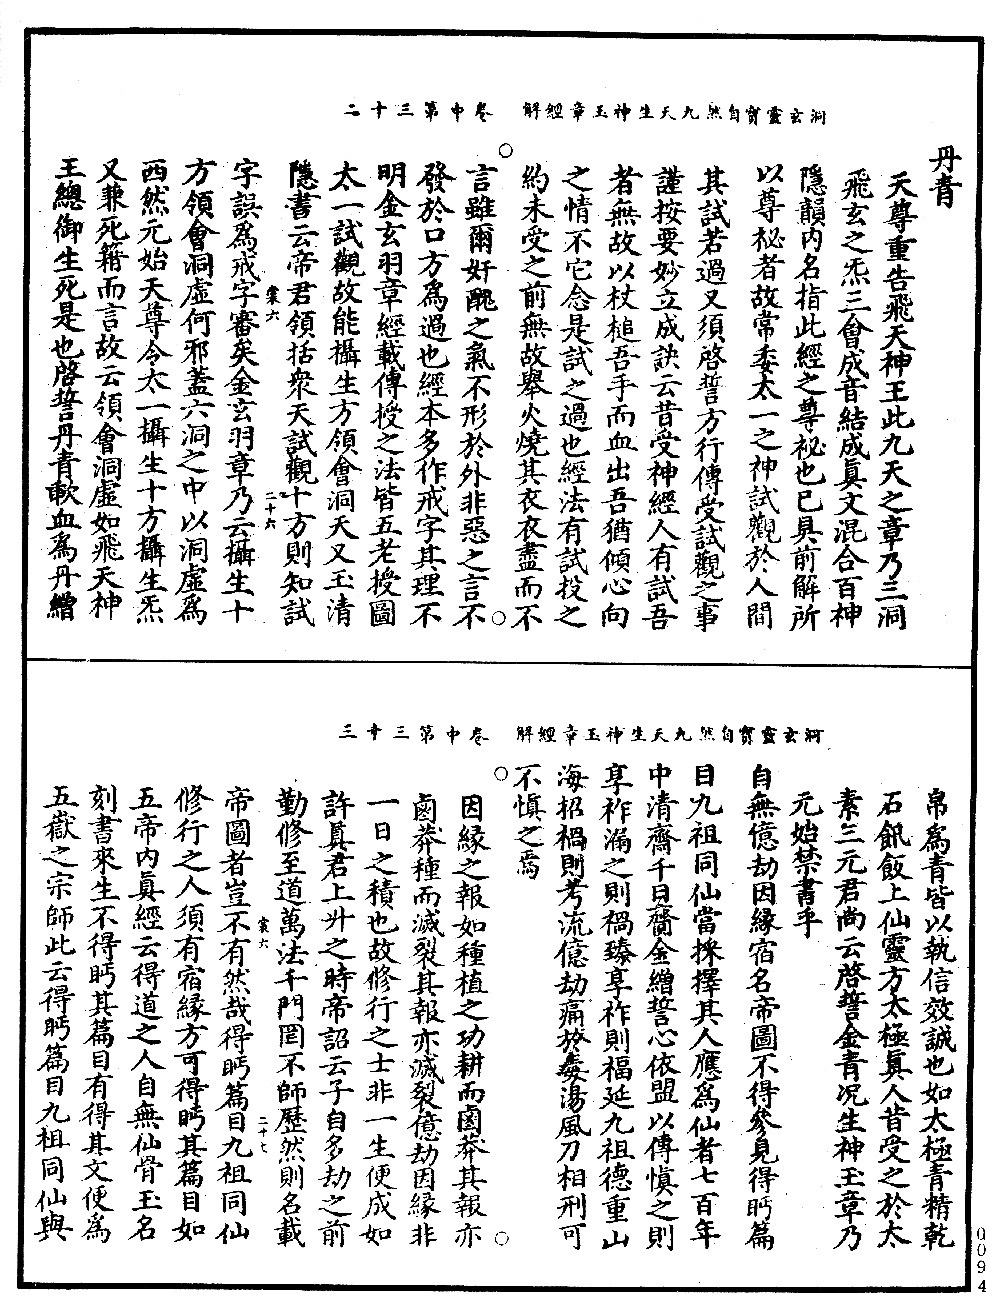 洞玄靈寶自然九天生神玉章經解　卷中第三十二
丹青
天尊重告飛天神王此九天之章乃三洞
飛玄之炁三會成音結成真文混合百神
隱韻內名指此經之尊祕也已具前解所
以尊祕者故常委太一之神試觀於人間
其試若過又須啓誓方行傳受試觀之事
謹按要妙立成訣云昔受神經人有試吾
者無故以杖槌吾手而血出吾猶傾心向
之情不它念是試之過也經法有試投之
約未受之前無故舉火燒其衣衣盡而不
言雖爾奸醜之氣不形於外非惡之言不
發於口方為過也經本多作戒字其理不
明金玄羽章經載傳授之法皆五老授圖
太一試觀故能攝生方領會洞天又玉清
隱書云帝君領括衆天試觀十方則知試
裳六
二十六
字誤為戒字審矣金玄羽章乃云攝生十
方領會洞虛何邪蓋六洞之中以洞虛為
西然元始天尊令太一攝生十方攝生炁
又兼死籍而言故云領會洞虛如飛天神
王總御生死是也啓誓丹青軟血為丹繒
洞玄靈寶自然九天生神玉章經解　卷中第三十三
帛為青皆以執信效誠也如太極青精乾
石䬳飯上仙靈方太極真人昔受之於太
素三元君尚云啓誓金青况生神玉章乃
元始禁書乎
自無億劫因緣宿名帝圖不得參見得眄篇
目九祖同仙當採擇其人應為仙者七百年
中清齋千日齎金繒誓心依盟以傳慎之則
享祚漏之則禍臻享祚則福延九祖德重山
海招禍則考流億劫痛於毒湯風刀相刑可
不慎之焉
因緣之報如種植之功耕而鹵莽其報亦
鹵莽種而滅裂其報亦滅裂億劫因緣非
一日之積也故修行之士非一生便成如
許真君上升之時帝詔云子自多劫之前
勤修至道萬法千門罔不師歷然則名載
裳六
二十七
帝圖者豈不有然哉得眄篇目九祖同仙
修行之人須有宿緣方可得眄其篇目如
五帝內真經云得道之人自無仙骨玉名
刻書來生不得眄其篇目有得其文便為
五嶽之宗師此云得眄篇目九祖同仙與
0094